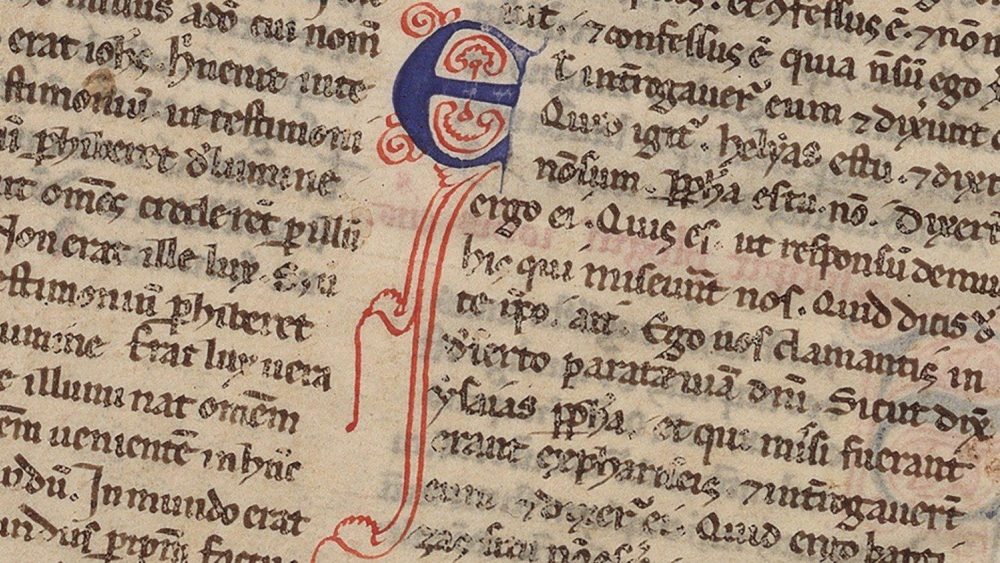 missus adõ cui nom̃
erat iohs̃. hic uenit in te
stimoniũ. ut testimoni
ũ phiberet d̓ lumine
ut om̃es crederẽt p illũ
Non erat ille lux. Sed
testimoniũ phiberet
lumine Erat lux uera
illuminat om̃em
uenientẽ in hũc
mũdũ. In mundo erat
mundus p ipm̃ factus
E
⁊ confessus ẽ. ⁊ nõ n
⁊ confessus ẽ quia nõ sũ ego
t int̃rogauer̃ eum ⁊ dixunt
Quid igit̃. helyas es tu. ⁊ dixit
nõ sum. ppha es tu. nõ. Dixer̃t
ergo ei. Quis es. ut responsũ demus
his qui miserũt nos. Quid dicis d̓
te ip̃o. ait. Ego uox clamantis in
d̓serto parate uiã dñi. Sicut dix̃
ysaias ppha. et qui missi fuerant
erant ex phariseis. ⁊ int̃rogauer̃t
eum ⁊ dixer̃t ei. Quid ergo bapti
zas si tu nõ es